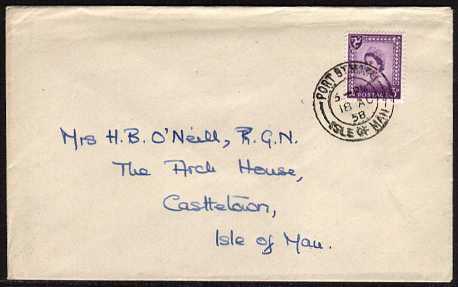 PORT ST MARY
18 AU
58
ISLE OF MAN
POSTAGE
3D
Mrs H.B. O'Neill, R.G.N.
The Arch House,
Castletown,
Isle of Man.